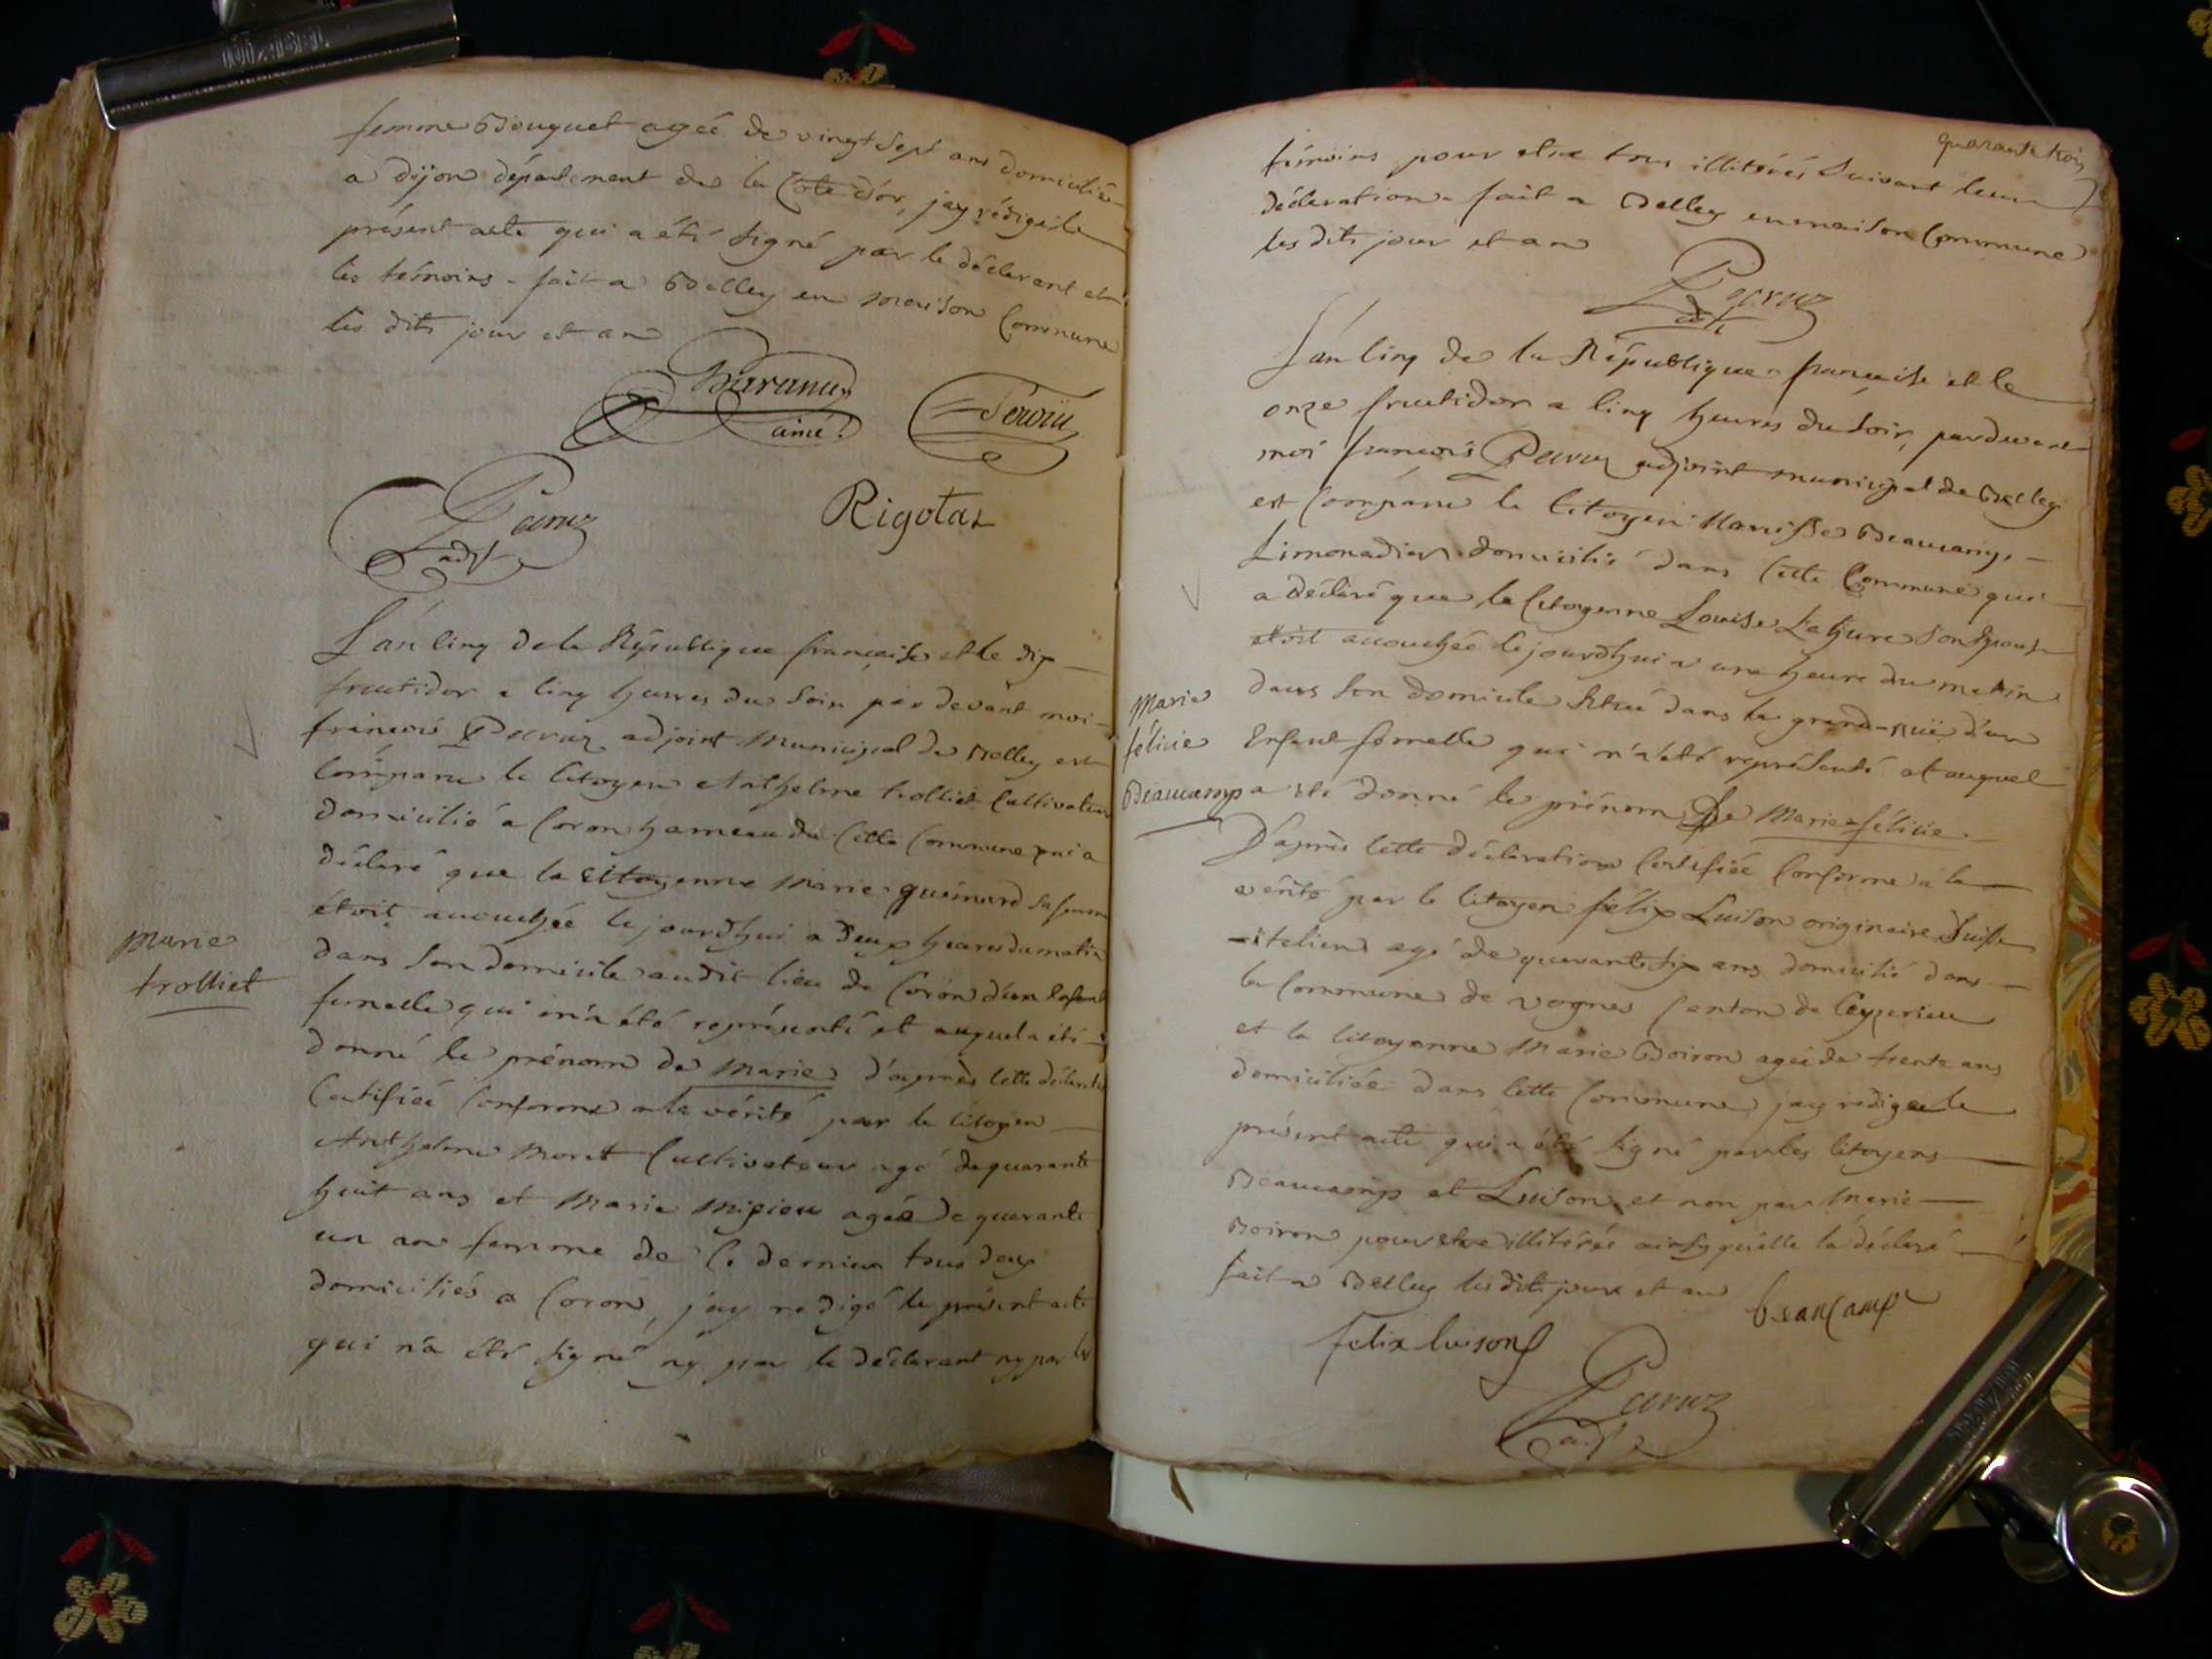 femme Bouquet ageé de vingt Sept ans domiciliée
a dijon département de la Cote d'or, jay rédigé le
présent acte qui a été signé par le déclarant et
les témoins - fait a Belley en maison Commune
les dits jour et an
ainé
Peruz
Rigotas
adjt
L'an Cinq de la République francaise et le dix
fructidor a Cinq heures du Soir par devant moi
francois Peruz adjoint Municipal de Belley est
Comparu le Citoyen Anthelme trolliet Cultivateur
domicilié a Coron hameau de Cette Commune qui a
déclaré que la Citoyenne Marie guémard sa femme
étoit accouchée cejourdhui a Deux heures du matin
dans Son domicile audit lieu de Coron d'un Enfant
femelle qui m'a été représenté et auquel a été
donné le prénom de Marie d'après Cette déclaration
Certifiée Conforme a la vérité par le Citoyen
Anthelme Moret Cultivateur agé de quarante
huit ans et Marie Mipieu ageé de quarante
un an femme de Ce dernier tous deux
domiciliés a Coron, j'ay redigé le présent acte
qui n'a été signé ny par le déclarant ny par les
Marie
trolliet
quarante trois
témoins pour etre tous illitérés Suivant leur
déclaration - fait a Belley en maison Commune
les dits jour et an
Peruz
adjt
L'an Cinq de la République francaise et le
onze fructidor a Cinq heures du Soir, pardevant
moi francois Peruz adjoint municipal de Belley
est Comparu le Citoyen Beaucamp
Limonadier domicilié dans Cette Commune qui
a déclaré que la Citoyenne Louise Son Epouse
etoit accouchée cejourdhui a une heure du matin
dans Son domicile Situé dans la grand-ruë d'un
Enfant femelle qui m'a été représenté et auquel
a été donné le prénom De Marie félicie
D'après Cette déclaration Certifiée Conforme a la
vérité par le Citoyen félix Luison originaire Suisse
-italien agé de quarante six ans domicilié dans
la Commune de Vognes Canton de Ceyzerieu
et la Citoyenne Marie Boiron ageé de trente ans
domiciliée dans Cette Commune jay redigé le
présent acte qui a été signé par les Citoyens
Beaucamp et Luison et non par Marie
Boiron pour etre illitérée ainsy qu'elle la déclaré
fait a Belley les dits jour et an
Marie
félicie
Beaucamp
beauCamp
felix luison
Peruz
adjt